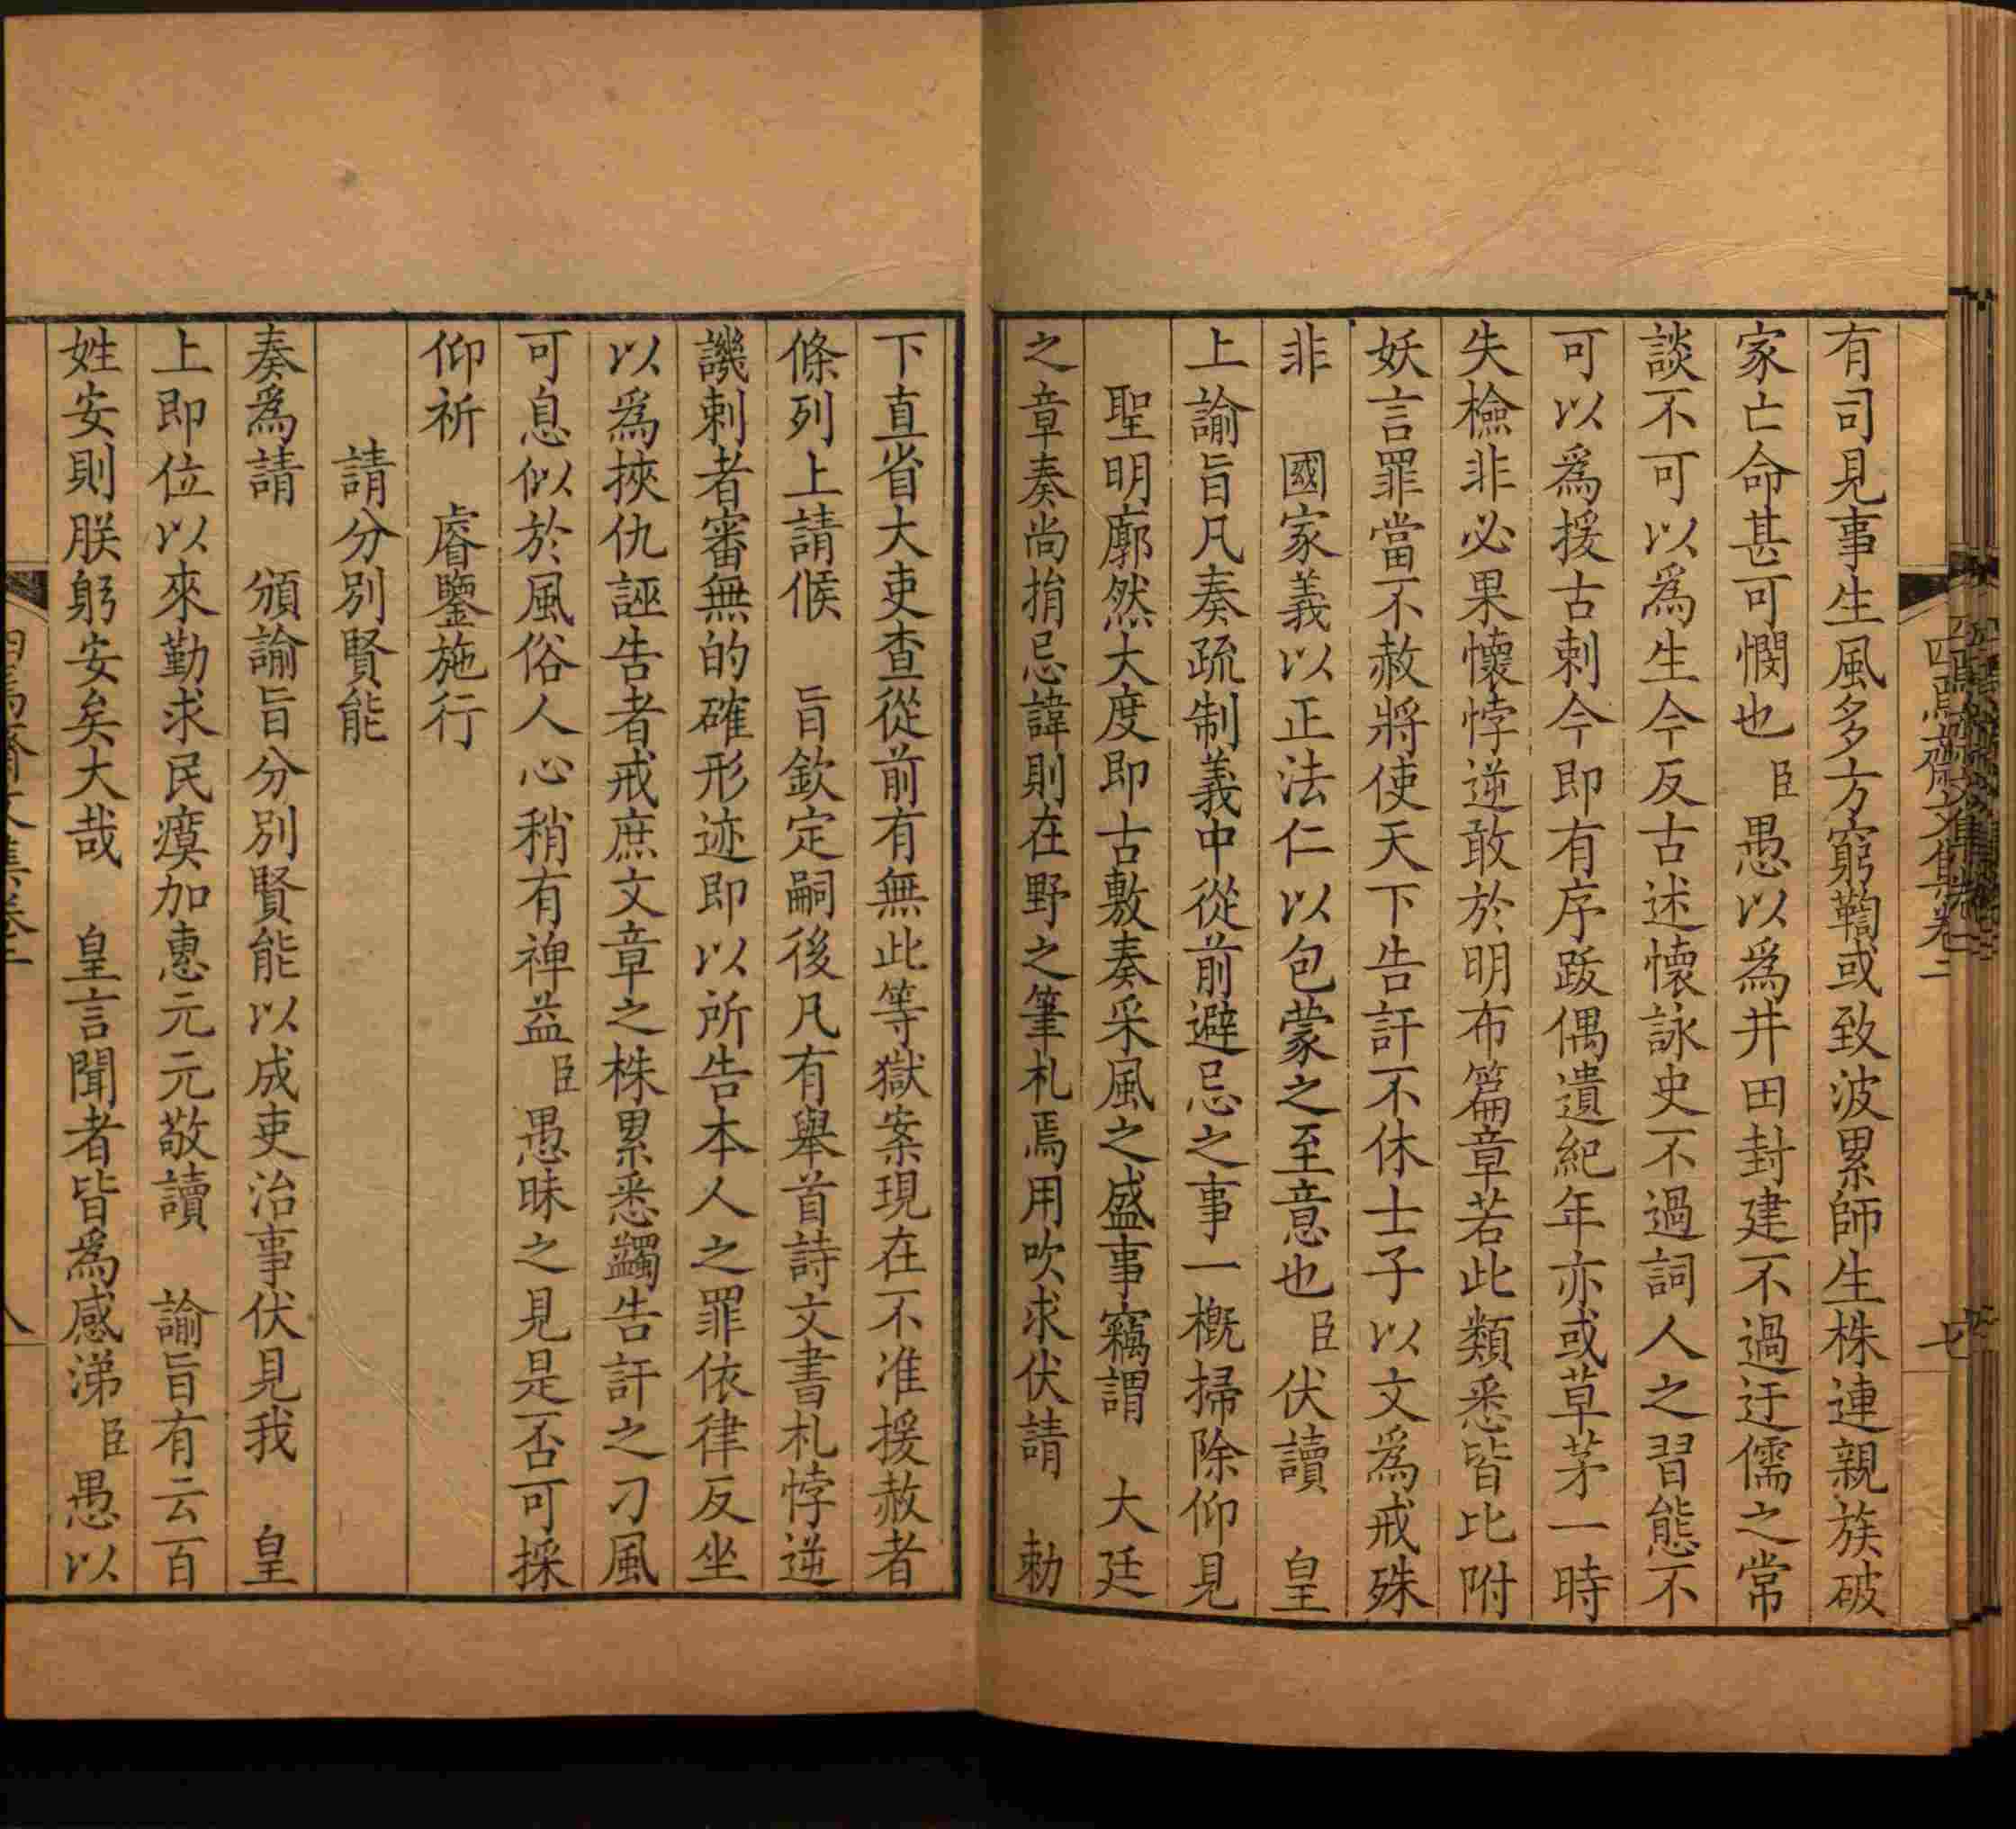 四焉齋文集卷二
七
有司見事生風多方窮鞫或致波累師生株連親族破
家亡命甚可憫也臣愚以爲井田封建不過迂儒之常
談不可以爲生今反古述懷詠史不過詞人之習態不
可以爲援古刺今即有序跋偶遺紀年亦或草茅一時
失檢非必果懷悖逆敢於明布篇章若此類悉皆比附
妖言罪當不赦將使天下告訐不休士子以文爲戒殊
非 國家義以正法仁以包蒙之至意也臣伏讀 皇
上諭旨凡奏疏制義中從前避忌之事一概掃除仰見
聖明廓然大度即古敷奏采風之盛事竊謂 大廷
之章奏尚捐忌諱則在野之筆札焉用吹求伏請 勅
下直省大吏查從前有無此等獄案現在不准援赦者
條列上請候 旨欽定嗣後凡有舉首詩文書札悖逆
譏刺者審無的確形迹即以所告本人之罪依律反坐
以爲挾仇誣告者戒庶文章之株累悉蠲告訐之刁風
可息似於風俗人心稍有裨益臣愚昧之見是否可採
仰祈 睿鑒施行
請分別賢能
奏爲請 頒諭旨分別賢能以成吏治事伏見我 皇
上即位以來勤求民瘼加惠元元敬讀 諭旨有云百
姓安則朕躬安矣大哉 皇言聞者皆爲感涕臣愚以